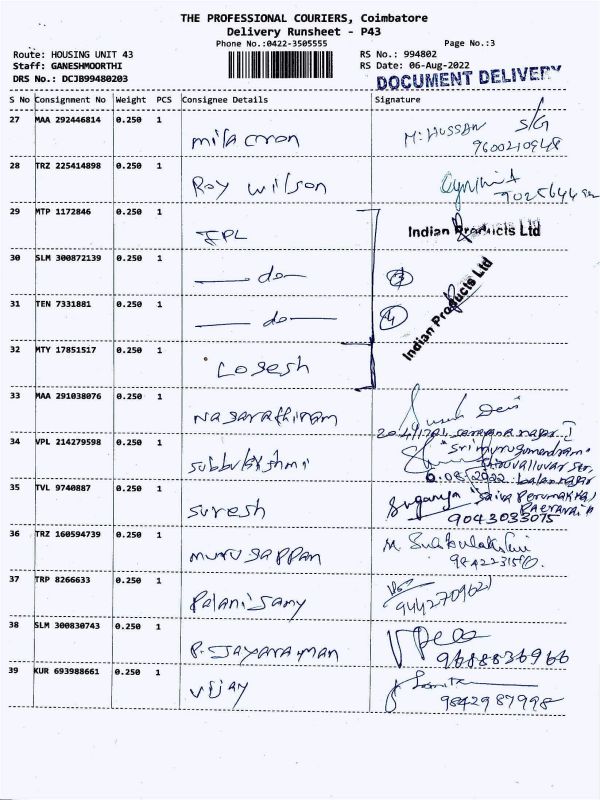 THE PROFESSIONAL COURIERS, Coimbatore
Delivery Runsheet - P43
Phone No.:0422-3505555
Page No.:3
Route: HOUSING UNIT 43
Staff: GANESHMOORTHI
DRS No.: DCJB99480203
RS No.: 994802
RS Date: 06-Aug-2022
DOCUMENT DELIVERY
S No Consignment No Weight PCS Consignee Details Signature
27 MAA 292446814 0.250 1 M. HUSSAN S/G
9600210948
28 TRZ 225414898 0.250 1 Roy Wilson
29 MTP 1172846 0.250 1 IPL Indian Products Ltd
30 SLM 300872139 0.250 1 — do — 3
Indian Products Ltd
31 TEN 7331881 0.250 1 — do — 4
32 MTY 17851517 0.250 1 Logesh
33 MAA 291038076 0.250 1 Nagarathinam
34 VPL 214279598 0.250 1 Subbulakshmi
35 TVL 9740887 0.250 1 Suresh Suganya
9043033075
36 TRZ 160594739 0.250 1 Murugappan
37 TRP 8266633 0.250 1 Palanisamy
9442709621
38 SLM 300830743 0.250 1 P. Jayaraman
9688836966
39 KUR 693988661 0.250 1 Vijay
9842987998